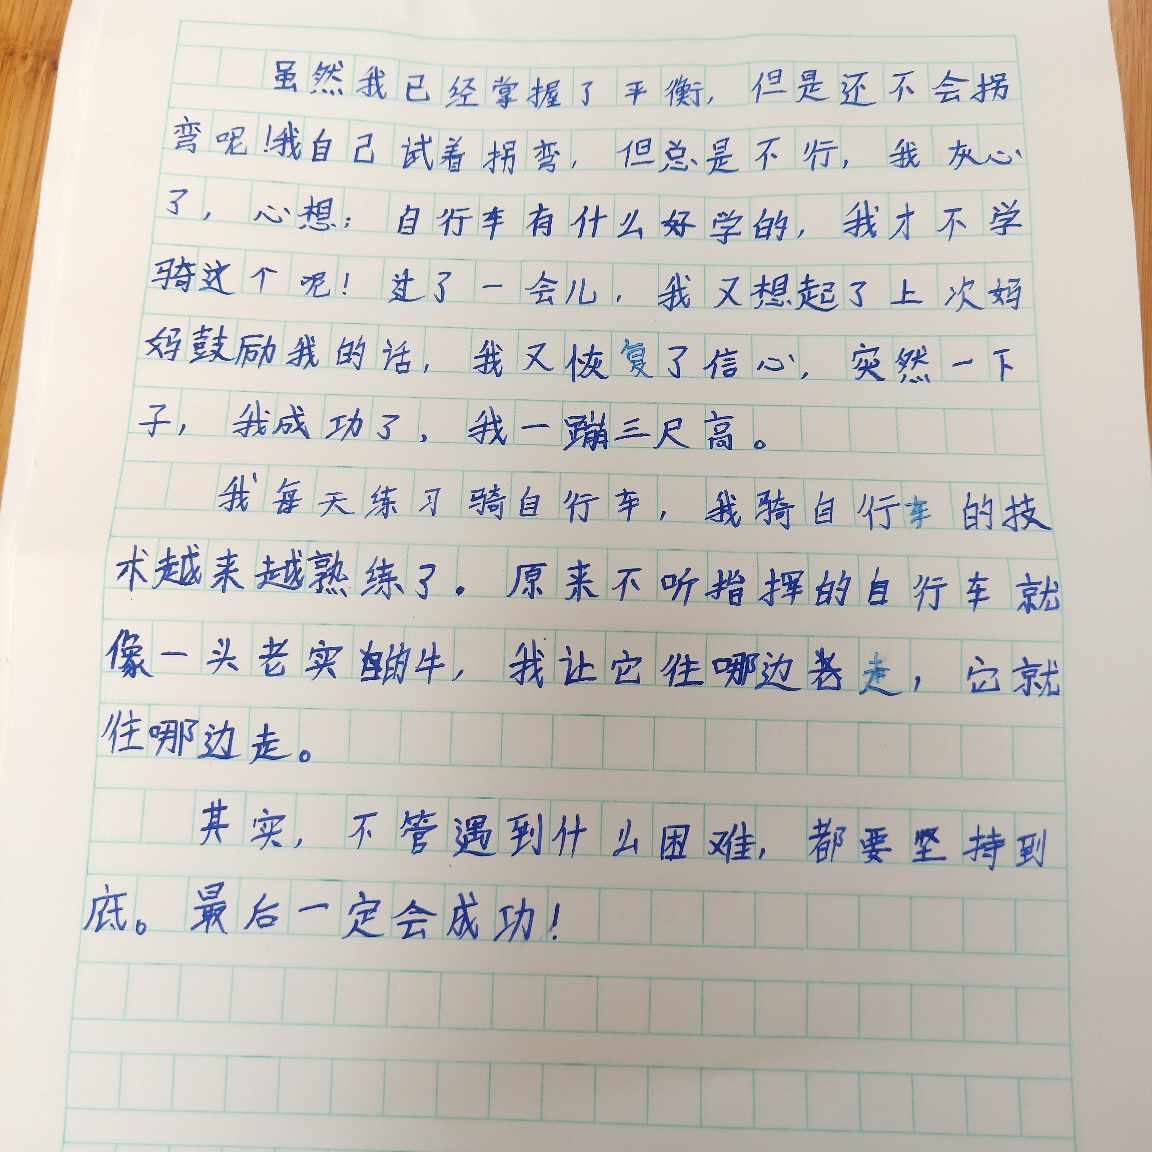 虽然我已经掌握了平衡，但是还不会拐
弯呢！我自己试着拐弯，但总是不行，我灰心
了，心想：自行车有什么好学的，我才不学
骑这个呢！过了一会儿，我又想起了上次妈
妈鼓励我的话，我又恢复了信心，突然一下
子，我成功了，我一蹦三尺高。
我每天练习骑自行车，我骑自行车的技
术越来越熟练了。原来不听指挥的自行车就
像一头老实的牛，我让它往哪边走，它就
往哪边走。
其实，不管遇到什么困难，都要坚持到
底。最后一定会成功！